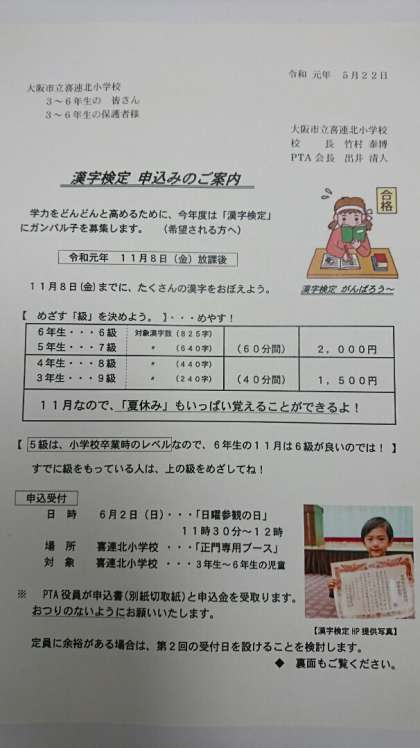 令和 元年 ５月２２日
大阪市立喜連北小学校
３～６年生の 皆さん
３～６年生の保護者様
大阪市立喜連北小学校
校 長 竹村 泰博
PTA 会長 出井 清人
漢字検定 申込みのご案内
学力をどんどんと高めるために、今年度は「漢字検定」
にガンバル子を募集します。 （希望される方へ）
合格
令和元年 １１月８日（金）放課後
漢字検定 がんばろう～
１１月８日(金)までに、たくさんの漢字をおぼえよう。
【 めざす「級」を決めよう。】・・・めやす！
６年生・・・６級 対象漢字数（８２５字）
５年生・・・７級 〃 （６４０字） （６０分間） ２，０００円
４年生・・・８級 〃 （４４０字）
３年生・・・９級 〃 （２４０字） （４０分間） １，５００円
１１月なので、「夏休み」もいっぱい覚えることができるよ！
【 ５級は、小学校卒業時のレベルなので、６年生の１１月は６級が良いのでは！ 】
すでに級をもっている人は、上の級をめざしてね！
申込受付
日 時 ６月２日（日）・・・「日曜参観の日」
１１時３０分～１２時
場 所 喜連北小学校 ・・・「正門専用ブース」
対 象 喜連北小学校 ・・・３年生～６年生の児童
※ PTA 役員が申込書(別紙切取紙)と申込金を受取ります。
おつりのないようにお願いいたします。
【漢字検定 HP 提供写真】
定員に余裕がある場合は、第２回の受付日を設けることを検討します。
◆ 裏面もご覧ください。